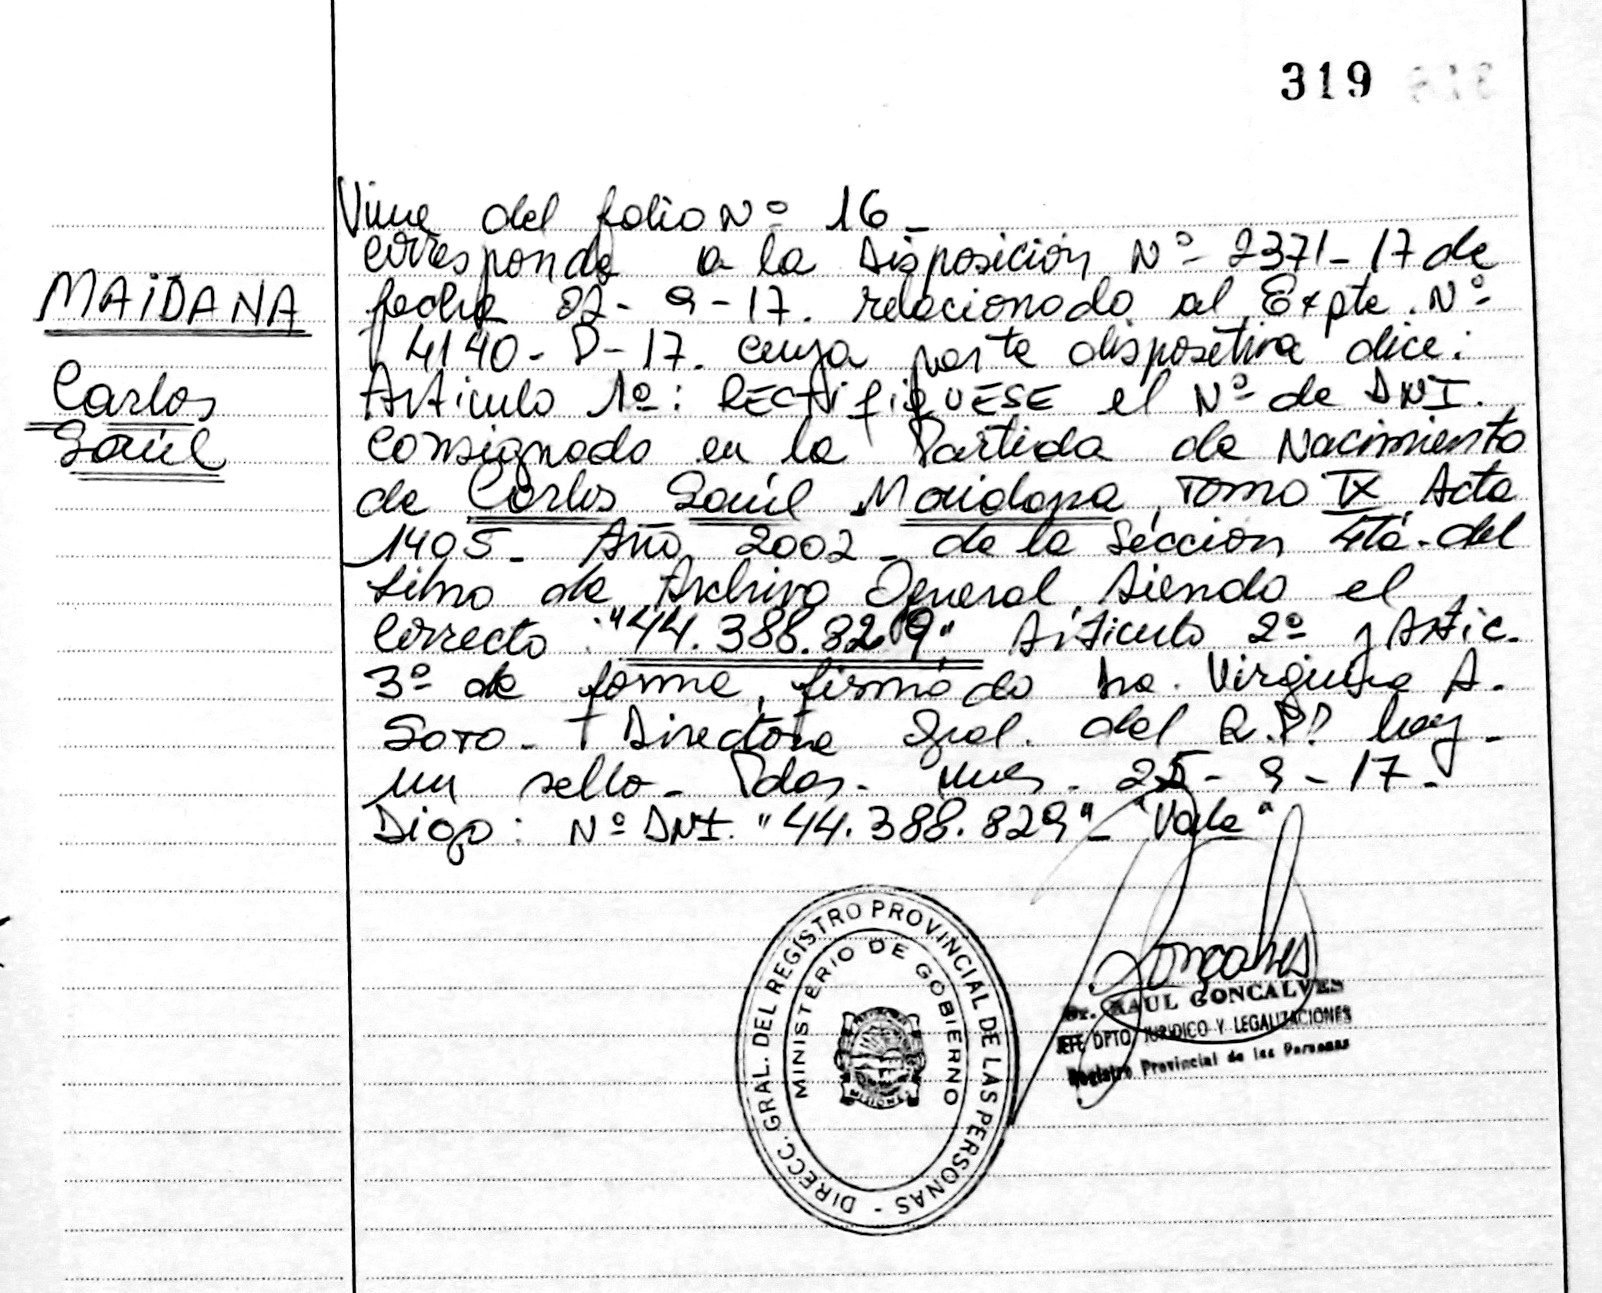 319
Viene del folio Nº 16 -
corresponde a la Disposición Nº 2371-17 de
MAIDANA
fecha 22-9-17. relacionado al Expte. Nº
4140-D-17. cuya parte dispositiva dice:
Carlos
Artículo 1º: RECTIFIQUESE el Nº de DNI.
Saúl
consignado en la Partida de Nacimiento
de Carlos Saúl Maidana, Tomo IX Acta
1405- Año 2002- de la Sección 4ta. del
Libro de Archivo General, siendo el
correcto: "44.388.829" Artículo 2º y Artic.
3º de forma, firmado Dra. Virginia A.
Soto - Directora Gral. del R.P.P hay
un sello - Pdas. Mnes. 25-9-17-
Digo: Nº DNI. "44.388.829"- "Vale"
DIRECC. GRAL. DEL REGISTRO PROVINCIAL DE LAS PERSONAS -
MINISTERIO DE GOBIERNO
MISIONES
Goncalves
Dr. RAUL GONCALVES
JEFE DPTO JURIDICO Y LEGALIZACIONES
Registro Provincial de las Personas